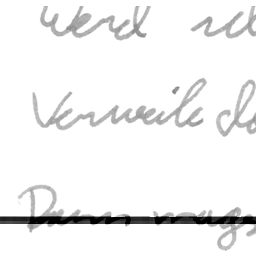 Werd
Verweile do
Dann magst